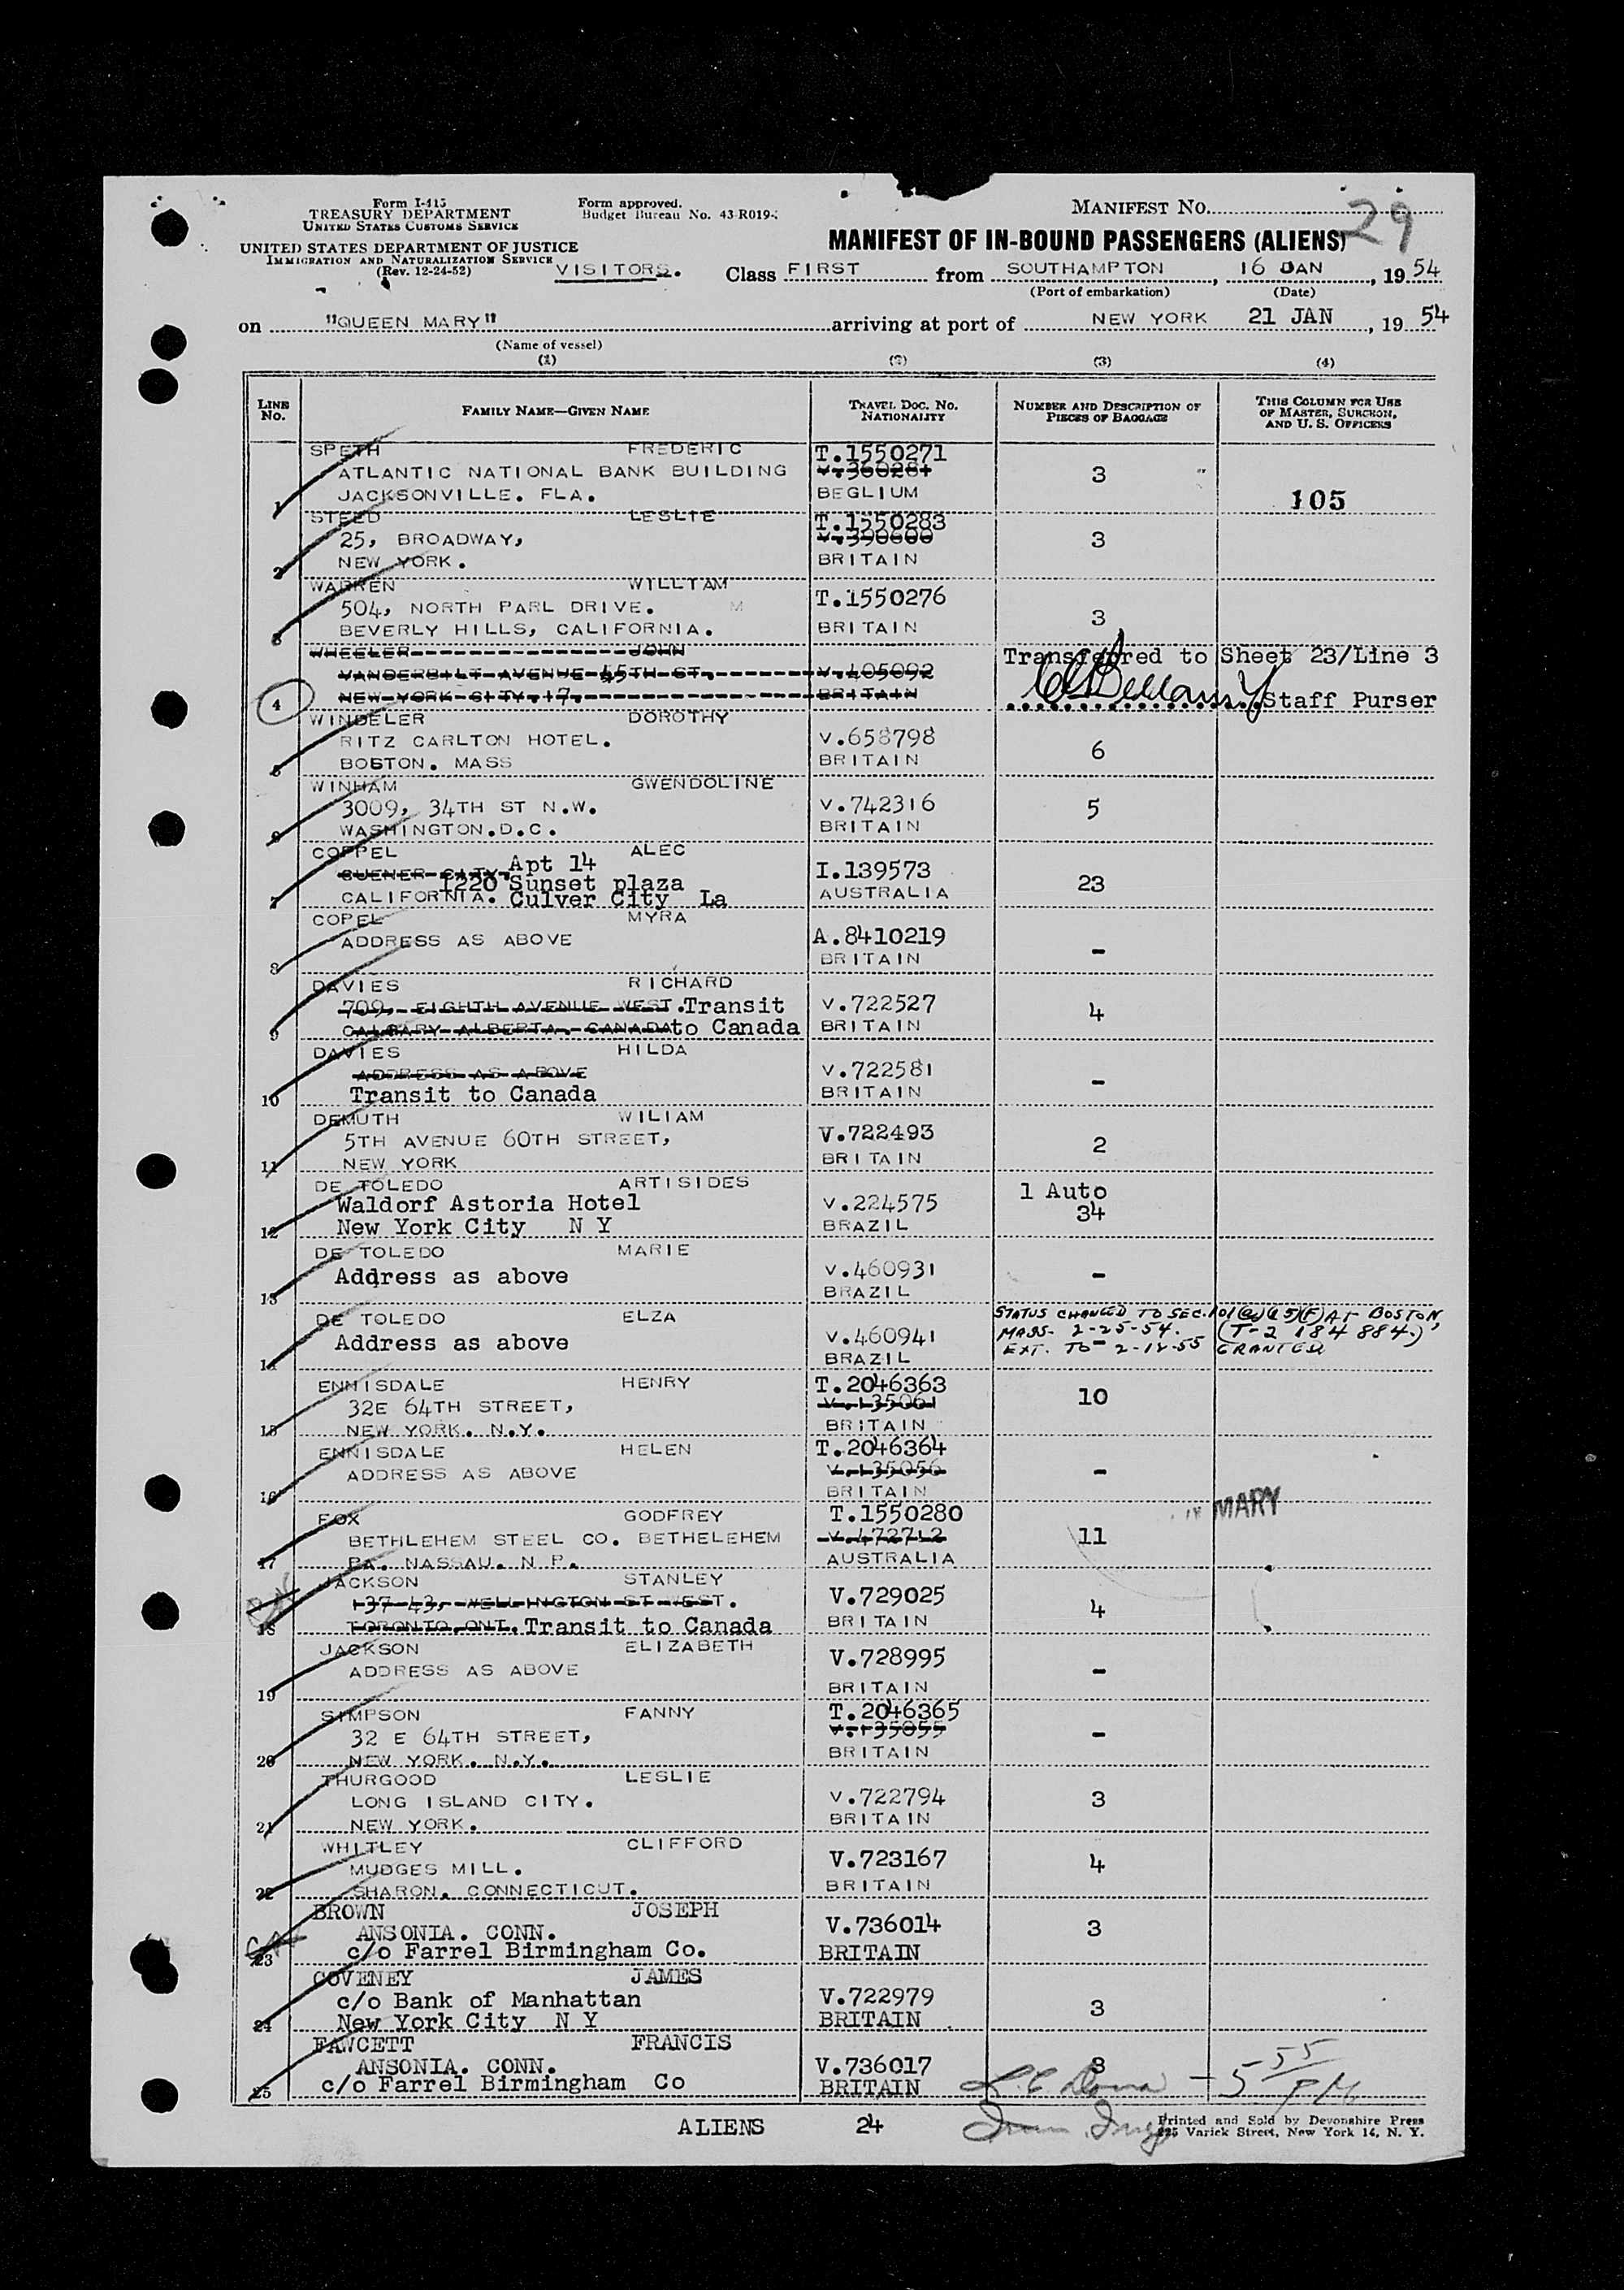 Form I-415
TREASURY DEPARTMENT
UNITED STATES CUSTOMS SERVICE
UNITED STATES DEPARTMENT OF JUSTICE
IMMIGRATION AND NATURALIZATION SERVICE
(Rev. 12-24-52)
Form approved.
Budget Bureau No. 43-R019-
MANIFEST NO. 29
MANIFEST OF IN-BOUND PASSENGERS (ALIENS)
VISITORS. Class FIRST from SOUTHAMPTON, 16 JAN, 1954
(Port of embarkation) (Date)
on "QUEEN MARY" arriving at port of NEW YORK 21 JAN, 1954
(Name of vessel)
(1) (2) (3) (4)
LINE No. FAMILY NAME—GIVEN NAME TRAVEL DOC. NO. NATIONALITY NUMBER AND DESCRIPTION OF PIECES OF BAGGAGE THIS COLUMN FOR USE OF MASTER, SURGEON, AND U. S. OFFICERS
SPETH FREDERIC T.1550271
ATLANTIC NATIONAL BANK BUILDING 3
1 JACKSONVILLE. FLA. BEGLIUM 105
STEED LESLIE T.1550283
25, BROADWAY, V.390600 3
2 NEW YORK. BRITAIN
WARREN WILLIAM T.1550276
504, NORTH PARL DRIVE. M 3
3 BEVERLY HILLS, CALIFORNIA. BRITAIN
WHEELER JOHN Transferred to Sheet 23/Line 3
VANDERBILT AVENUE 45TH ST. V.405092
4 NEW YORK CITY. 17. BRITAIN Staff Purser
WINDELER DOROTHY
RITZ CARLTON HOTEL. V.658798 6
5 BOSTON. MASS BRITAIN
WINHAM GWENDOLINE
3009, 34TH ST N.W. V.742316 5
6 WASHINGTON.D.C. BRITAIN
COPPEL ALEC
Apt 14 I.139573
1220 Sunset plaza 23
7 CALIFORNIA. Culver City La AUSTRALIA
COPEL MYRA
ADDRESS AS ABOVE A.8410219 -
8 BRITAIN
DAVIES RICHARD
709, EIGHTH AVENUE WEST. Transit V.722527 4
9 CALGARY ALBERTA. CANADA to Canada BRITAIN
DAVIES HILDA
ADDRESS AS ABOVE V.722581 -
10 Transit to Canada BRITAIN
DEMUTH WILIAM
5TH AVENUE 60TH STREET, V.722493 2
11 NEW YORK BRITAIN
DE TOLEDO ARTISIDES 1 Auto
Waldorf Astoria Hotel V.224575 34
12 New York City N Y BRAZIL
DE TOLEDO MARIE
Address as above V.460931 -
13 BRAZIL
DE TOLEDO ELZA STATUS CHANGED TO SEC. 101(a)(15)(F) AT BOSTON,
Address as above V.460941 MASS. 2-25-54. (T-2 184 884.)
14 BRAZIL EXT. TO 2-12-55 GRANTED
ENNISDALE HENRY T.2046363
32E 64TH STREET, V.135061 10
15 NEW YORK. N.Y. BRITAIN
ENNISDALE HELEN T.2046364
ADDRESS AS ABOVE V.135056 -
16 BRITAIN
MARY
FOX GODFREY T.1550280
BETHLEHEM STEEL CO. BETHELEHEM V.472712 11
17 PA. NASSAU. N.P. AUSTRALIA
JACKSON STANLEY V.729025
137-43, WELLINGTON ST WEST. 4
18 TORONTO.ONT. Transit to Canada BRITAIN
JACKSON ELIZABETH V.728995
ADDRESS AS ABOVE -
19 BRITAIN
SIMPSON FANNY T.2046365
32 E 64TH STREET, V.135055 -
20 NEW YORK. N.Y. BRITAIN
THURGOOD LESLIE
LONG ISLAND CITY. V.722794 3
21 NEW YORK. BRITAIN
WHITLEY CLIFFORD
MUDGES MILL. V.723167 4
22 SHARON. CONNECTICUT. BRITAIN
BROWN JOSEPH
ANSONIA. CONN. V.736014 3
23 c/o Farrel Birmingham Co. BRITAIN
COVENEY JAMES
c/o Bank of Manhattan V.722979 3
24 New York City N Y BRITAIN
FAWCETT FRANCIS
ANSONIA. CONN. V.736017 3
25 c/o Farrel Birmingham Co BRITAIN 5 55 PM
ALIENS 24
Printed and Sold by Devonshire Press
225 Varick Street, New York 14, N. Y.